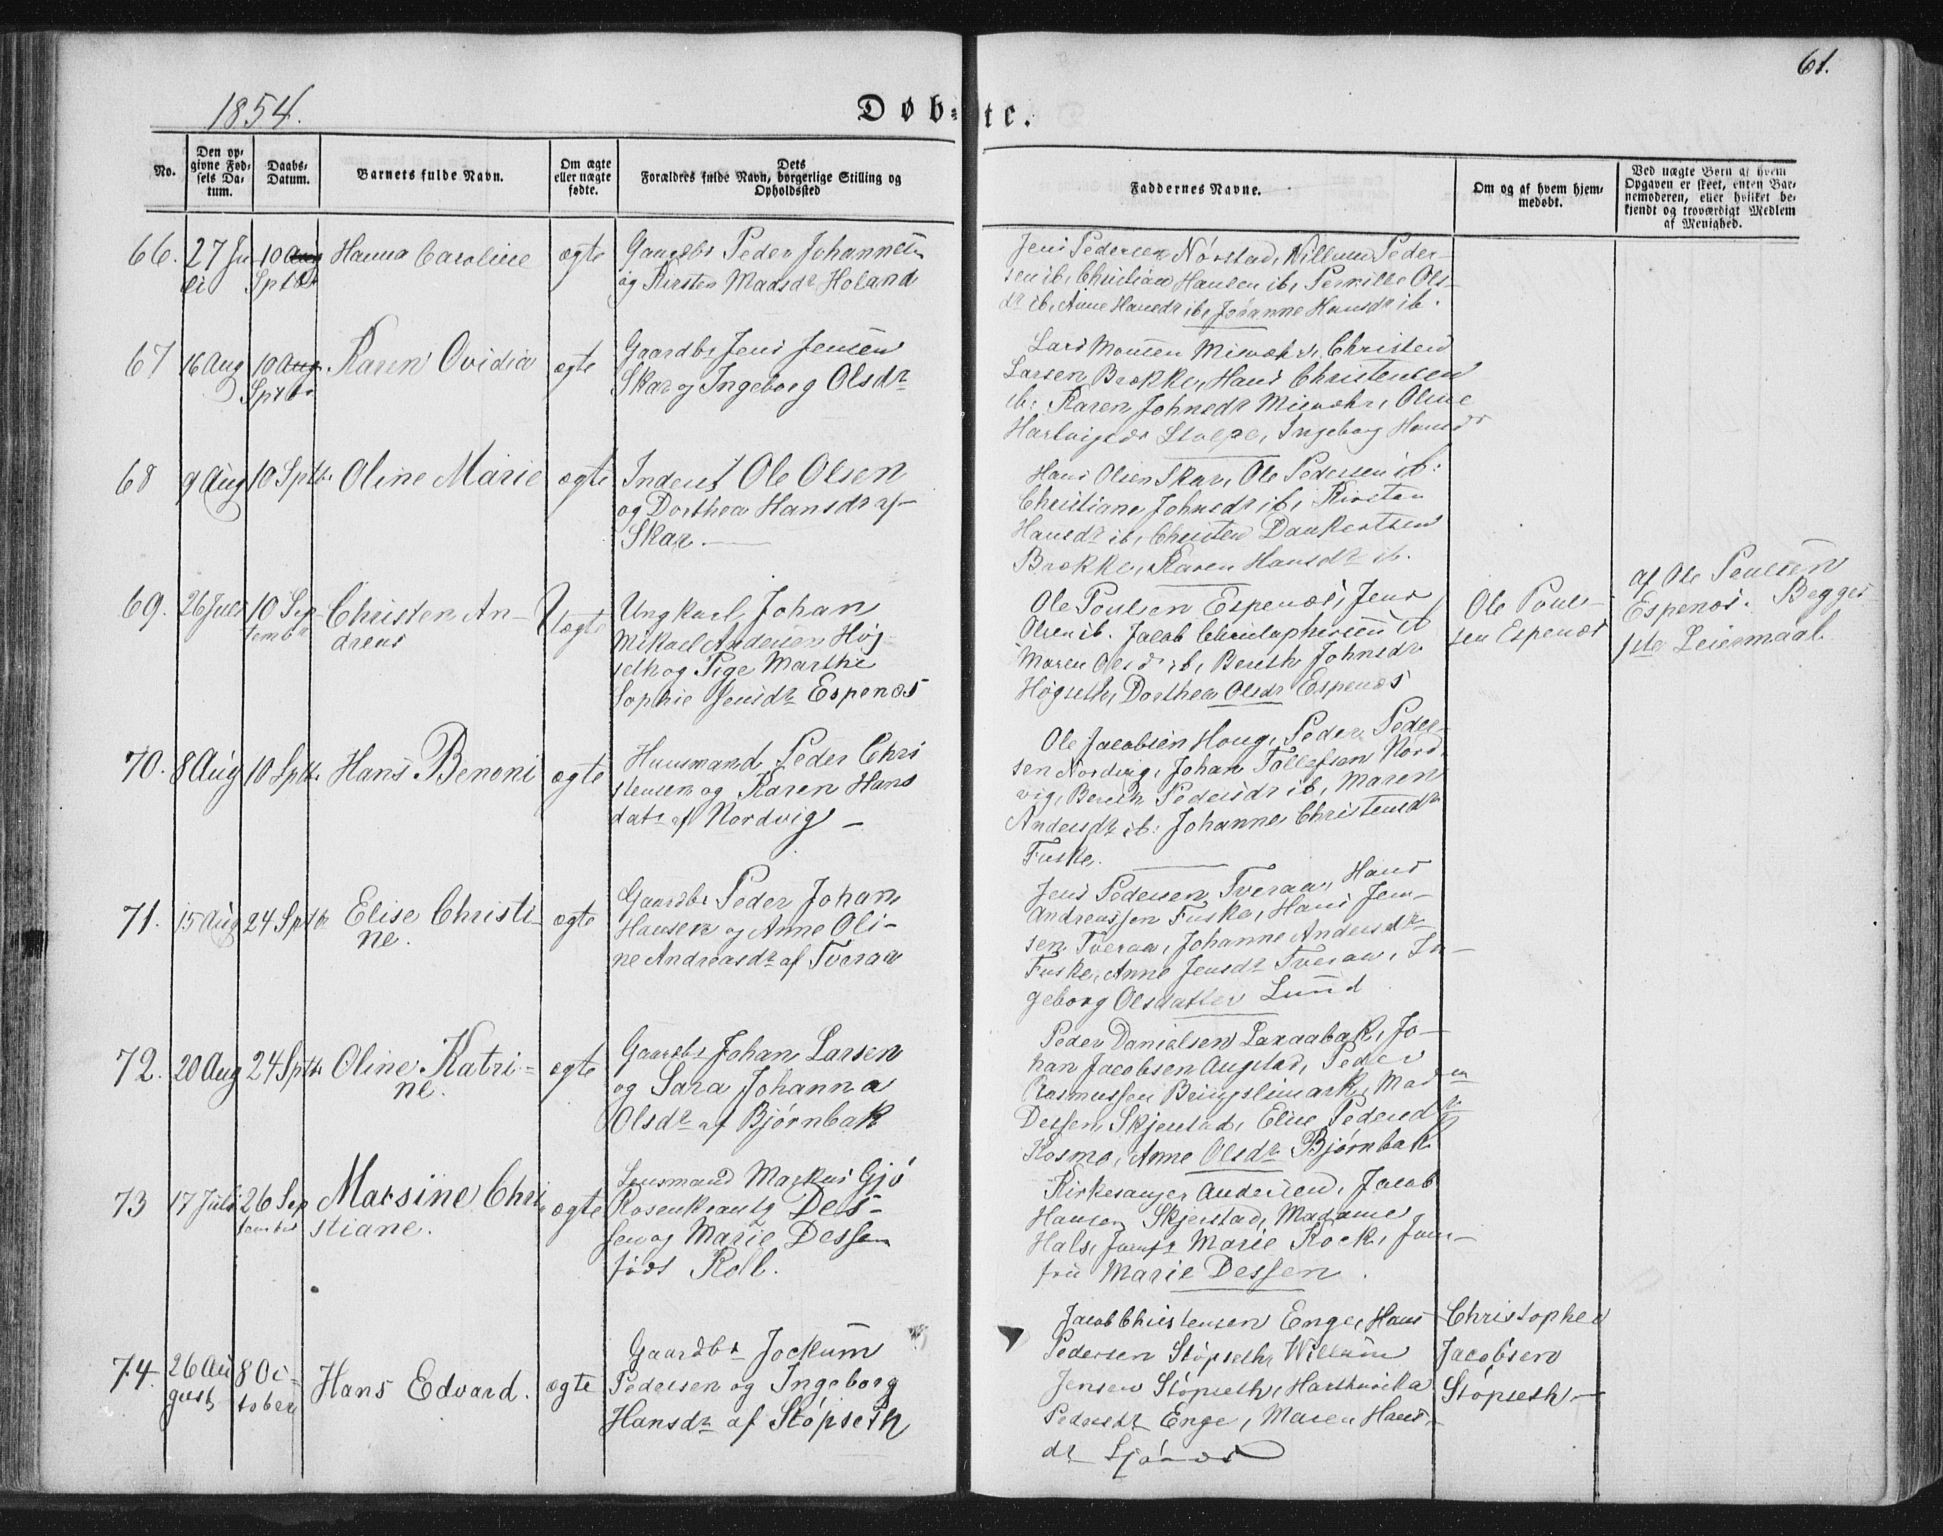 61.
1854.
Døb-te.
No.
Den op-
givne Fød-
sels Da-
tum.
Daabs-
Datum.
Barnets fulde Navn.
Om ægte
eller uægte
fødte.
Dets
Forældres fulde Navn, borgerlige Stilling og
Opholdssted
Faddernes Navne.
Om og af hvem hjem-
medøbt.
Ved uægte Børn af hvem
Opgaven er skeet, enten Bar-
nemoderen, eller hvilket be-
kjendt og troværdigt Medlem
af Menighed.
66. 27 Ju
li
10 Aug
Sptbr
Hanna Caroline
ægte
Gaardbr Peder Johannes
og Kirsten Madsdr Holand
Jens Pedersen Nørstad, Willum Peder-
sen ib, Christian Hansen ib, Pernille Ols-
dr ib, Anne Hansdr ib, Johanne Hansdr ib.
67 16 Aug
10 Aug
Sptbr
Karen Ovidia
ægte
Gaardbr Jens Jensen
Skar og Ingeborg Olsdr
Lars Monsen Misvær, Christen
Larsen Brække, Hans Christensen
ib: Karen Johnsdr Misvær, Oline
Hartvigsdr Stolpe, Ingeborg Hansdr
68 9 Aug 10 Sptbr. Oline Marie
ægte
Inderst Ole Olsen
og Dorthea Hansdr af
Skar.
Hans Olsen Skar, Ole Pedersen ib:
Christiane Johnsdr ib, Kirsten
Hansdr ib, Christen Dankertsen
Brække, Karen Hansdr ib.
69. 26 Juli 10 Sep-
tembr
Christen An-
dreas
Uægte
Ungkarl Johan
Mikael Andersen Høg-
seth og Pige Marthe
Sophie Jensdr Espenæs
Ole Poulsen Espenæs, Jens
Olsen ib. Jacob Christophersen ib
Maren Olsdr ib, Bereth Johnsdr
Høgseth, Dorthea Olsdr Espenæs
Ole Poul-
sen Espenæs
af Ole Poulsen
Espenæs. Begges
1ste Leiermaal
70. 8 Aug 10 Sptbr. Hans Benoni
ægte
Huusmand Peder Chri
stensen og Karen Hans
datr af Nordvig
Ole Jacobsen Houg, Peder Peder-
sen Nordvig, Johan Tollefsen Nord-
vig, Bereth Pedersdr ib, Maren
Andersdr ib: Johanne Christensdr
Fuske.
71. 15 Aug 24 Sptbr Elise Christi-
ne.
ægte
Gaardbr Peder Johan
Hansen og Anne Oli-
ne Andreasdr af Tveraa
Jens Pedersen Tveraa, Hans
Andreassen Fuske, Hans Jen-
sen Tveraa, Johanne Andersdr
Fuske, Anne Jensdr Tveraa, In-
geborg Olsdatter Lund
72. 20 Aug 24 Sptbr Oline Katri-
ne.
ægte
Gaardbr Johan Larsen
og Sara Johanna
Olsdr af Bjørnbak
Peder Danielsen Laxaabak, Jo-
han Jacobsen Augstad, Peder
Rasmussen Bringslimark, Madm
Dessen Skjerstad, Elise Pedersdr
Kosmo, Anne Olsdr Bjørnbak
73 17 Juli 26 Sep
tember
Marsine Chri
stiane.
ægte
Lensmand Markus Gjø
Rosenkrantz Des-
sen og Marie Dessen
født Roll.
Kirkesanger Andersen, Jacob
Hansen Skjerstad, Madame
Hals, Jomfr Marie Kock, Jom-
fru Marie Dessen.
74. 26 Au
gust
8 Oc-
tober
Hans Edvard.
ægte
Gaardbr Jockum
Pedersen og Ingeborg
Hansdr af Støpseth
Jacob Christensen Enge, Hans
Pedersen Støpseth, Willum
Jensen Støpseth, Harthvicka
Pedersdr Enge, Maren Hans-
dr
Christopher
Jacobsen
Støpseth